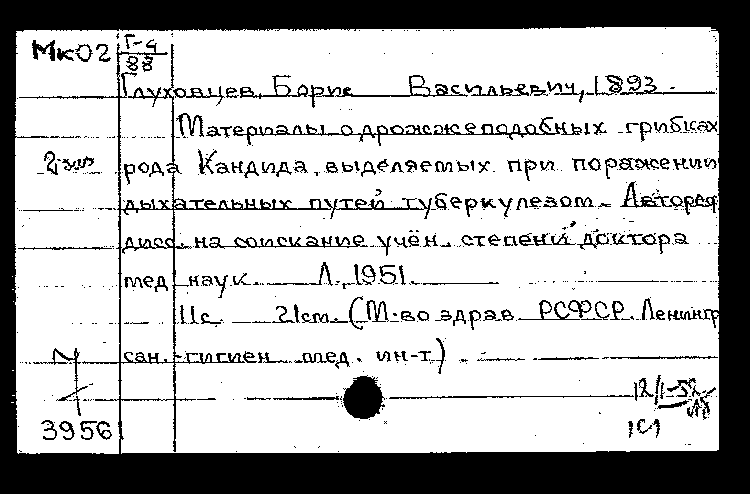 Мк02 Г-4
88
Глуховцев, Борис Васильевич, 1893-
Материалы о дрожжеподобных грибках
2 экз
рода Кандида, выделяемых при поражении
дыхательных путей туберкулезом. Автореф
дисс. на соискание учён. степени доктора
мед наук. Л., 1951.
11с. 21см. (М-во здрав. РСФСР. Ленингр
сан.-гигиен мед. ин-т).
12/I-52
39561